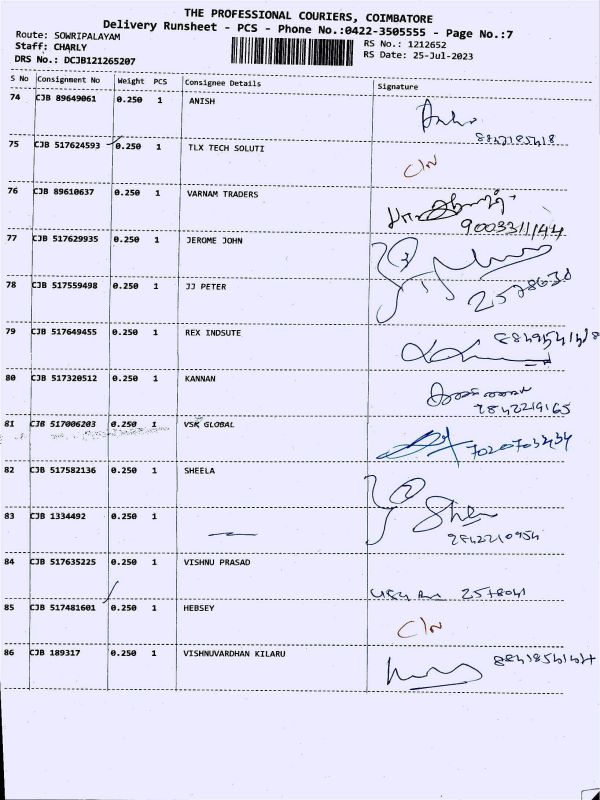 THE PROFESSIONAL COURIERS, COIMBATORE
Delivery Runsheet - PCS - Phone No.:0422-3505555 - Page No.:7
Route: SOWRIPALAYAM RS No.: 1212652
Staff: CHARLY RS Date: 25-Jul-2023
DRS No.: DCJB121265207
S No Consignment No Weight PCS Consignee Details Signature
74 CJB 89649061 0.250 1 ANISH
75 CJB 517624593 0.250 1 TLX TECH SOLUTI C/N
76 CJB 89610637 0.250 1 VARNAM TRADERS
9003311144
77 CJB 517629935 0.250 1 JEROME JOHN
78 CJB 517559498 0.250 1 JJ PETER
2578630
79 CJB 517649455 0.250 1 REX INDSUTE
80 CJB 517320512 0.250 1 KANNAN
9842219165
81 CJB 517006203 0.250 1 VSK GLOBAL
82 CJB 517582136 0.250 1 SHEELA
83 CJB 1334492 0.250 1
9842210954
84 CJB 517635225 0.250 1 VISHNU PRASAD
85 CJB 517481601 0.250 1 HEBSEY C/N
86 CJB 189317 0.250 1 VISHNUVARDHAN KILARU